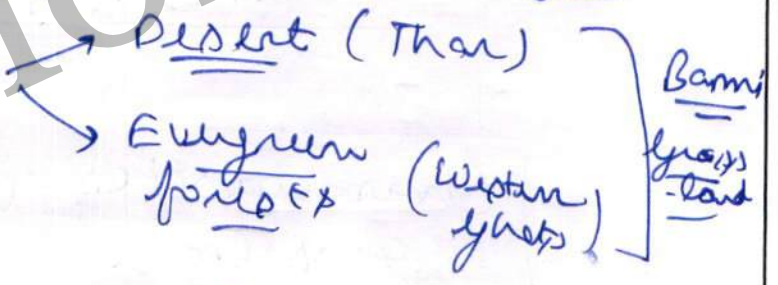 → Desert (Thar)
→ Evergreen forests (Western Ghats)
Banni Grass-land